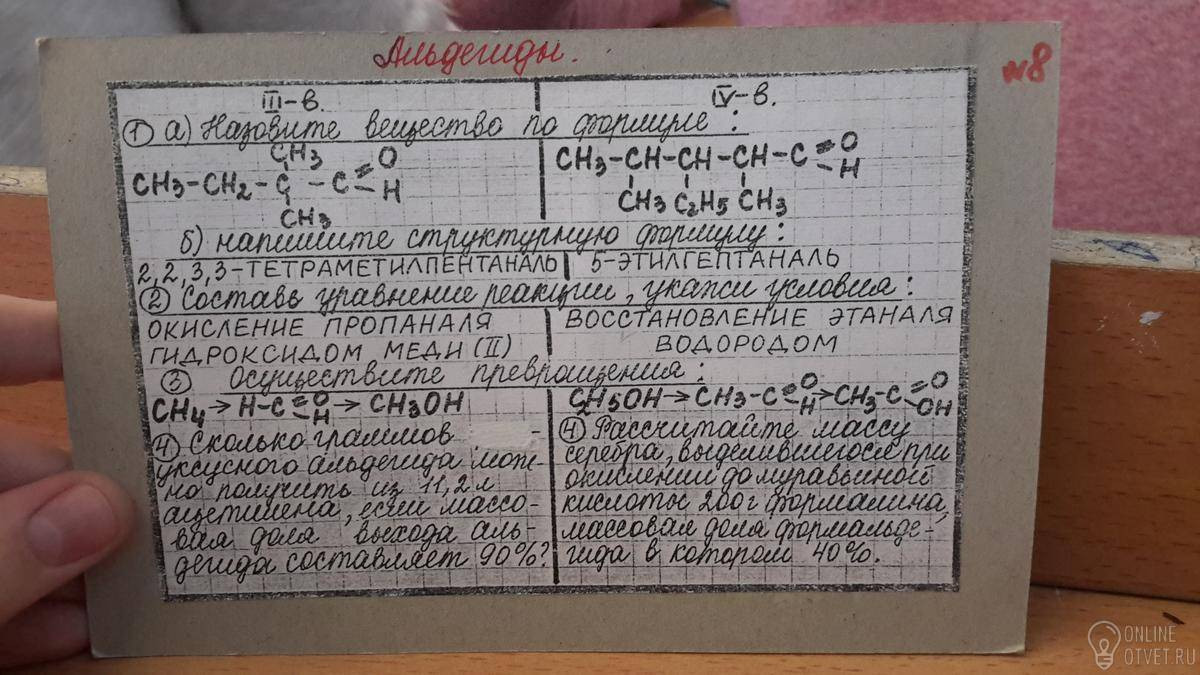 Альдегиды.
№8
III-в.
IV-в.
① а) Назовите вещество по формуле:
CH3
CH3-CH2-C-C=O
-H
CH3
CH3-CH-CH-CH-C=O
-H
CH3 C2H5 CH3
б) напишите структурную формулу:
2,2,3,3-ТЕТРАМЕТИЛПЕНТАНАЛЬ
5-ЭТИЛГЕПТАНАЛЬ
② Составь уравнение реакции, укажи условия:
ОКИСЛЕНИЕ ПРОПАНАЛЯ
ГИДРОКСИДОМ МЕДИ (II)
ВОССТАНОВЛЕНИЕ ЭТАНАЛЯ
ВОДОРОДОМ
③ Осуществите превращения:
CH4→H-C=O-H→CH3OH
C2H5OH→CH3-C=O-H→CH3-C=O-OH
④ Сколько граммов
уксусного альдегида мож-
но получить из 11,2 л
ацетилена, если массо-
вая доля выхода аль-
дегида составляет 90%?
④ Рассчитайте массу
серебра, выделившегося при
окислении до муравьиной
кислоты 200 г формалина,
массовая доля формальде-
гида в котором 40%.
ONLINE
OTVET.RU